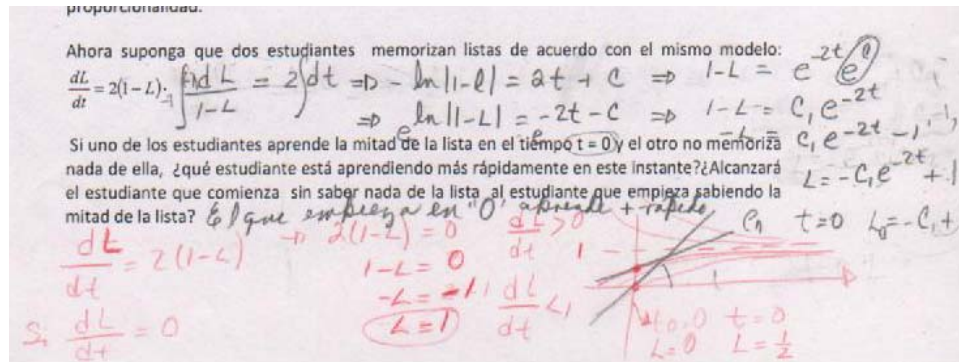 proporcionalidad.
Ahora suponga que dos estudiantes memorizan listas de acuerdo con el mismo modelo:
dL/dt = 2(1 – L). ∫ dL/1-L = 2∫dt ⇒ - ln|1-L| = 2t + C ⇒ 1-L = e^-2t e^C
⇒ ln|1-L| = -2t - C ⇒ 1-L = C₁ e^-2t
Si uno de los estudiantes aprende la mitad de la lista en el tiempo t = 0 y el otro no memoriza
-L = C₁ e^-2t - 1
nada de ella, ¿qué estudiante está aprendiendo más rápidamente en este instante?¿Alcanzará
L = -C₁ e^-2t + 1
el estudiante que comienza sin saber nada de la lista al estudiante que empieza sabiendo la
mitad de la lista? El que empieza en "0" aprende + rápido
En t=0 L₀=-C₁+
dL/dt = 2(1-L) → 2(1-L) = 0 dL/dt > 0 1
1-L = 0
-L = -1 dL/dt < 1
L = 1
Si dL/dt = 0
t=0 t=0
L=0 L=1/2